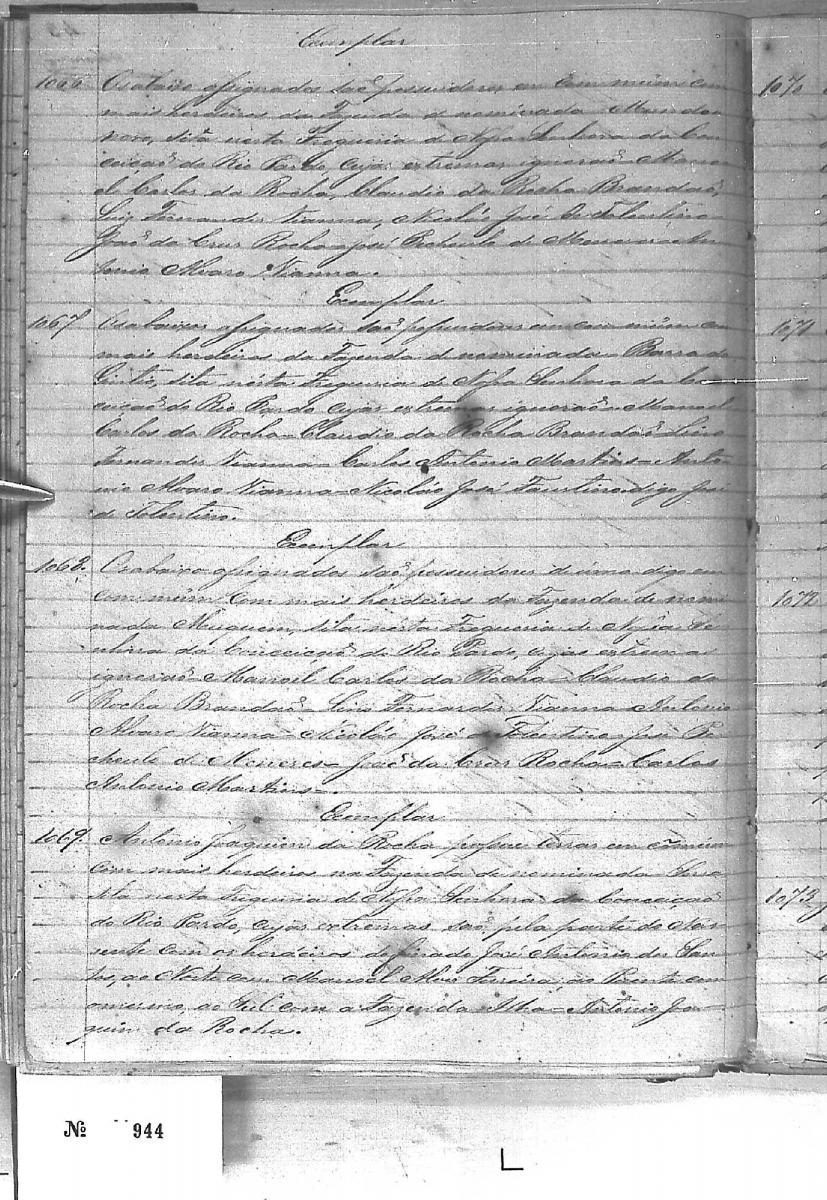 Exemplar
1066 Os abaixo assignados saõ possuidores em com mūm com
mais herdeiros da Fazenda de nominada Mundo
novo, sita nesta Freguesia de Nossa Senhora da Con
ceiçaõ do Rio Pardo cujas extremas ignoraõ Mano
el Carlos da Rocha, Claudio da Rocha Brandaõ,
Luiz Fernandes Vianna, Nicoláo José de Tolentino
Joaõ da Cruz Rocha José de Meneses An
tonio Alvaro Vianna.
Exemplar
1067 Os abaixos assignados saõ possuidores em com mūm com
mais herdeiros da Fazenda de nominada Barra do
sita nésta Freguesia de Nossa Senhora da Con
ceiçaõ do Rio Pardo cujas extremas ignoraõ Manoel
Carlos da Rocha Claudio da Rocha Brandaõ Luis
Fernandes Vianna Carlos Antonio Martins Anto
nio Alvaro Vianna Nicoláo José Faustino digo José
de Tolentino.
Exemplar
1068. Os abaixo assignados saõ possuidores de uma digo em
com mūm com mais herdeiros da Fazenda de nomi
nada Muquem, sita nésta Freguesia de Nossa Se
nhora da Conceiçaõ do Rio Pardo, cujas extremas
ignoraõ Manoel Carlos da Rocha Claudio da
Rocha Brandaõ Luis Fernandes Vianna Antonio
Alvaro Vianna Nicoláo José de Tolentino José
de Meneses Joaõ da Cruz Rocha Carlos
Antonio Martins.
Exemplar
1069. Antonio Joaquim da Rocha possue terras em cōmum
com mais herdeiros na Fazenda de nominada
sita nesta Freguesia de Nossa Senhora da Conceiçaõ
do Rio Pardo, cujas extremas saõ pela parte do Nas
sente com os herdeiros do finado José Antonio dos San
tos, ao Norte com Manoel Alves Ferreira, ao Poente com
o mesmo, ao Sul com a Fazenda Ilha Antonio Joa
quim da Rocha.
1070
1071
1072
1073
Nº 944